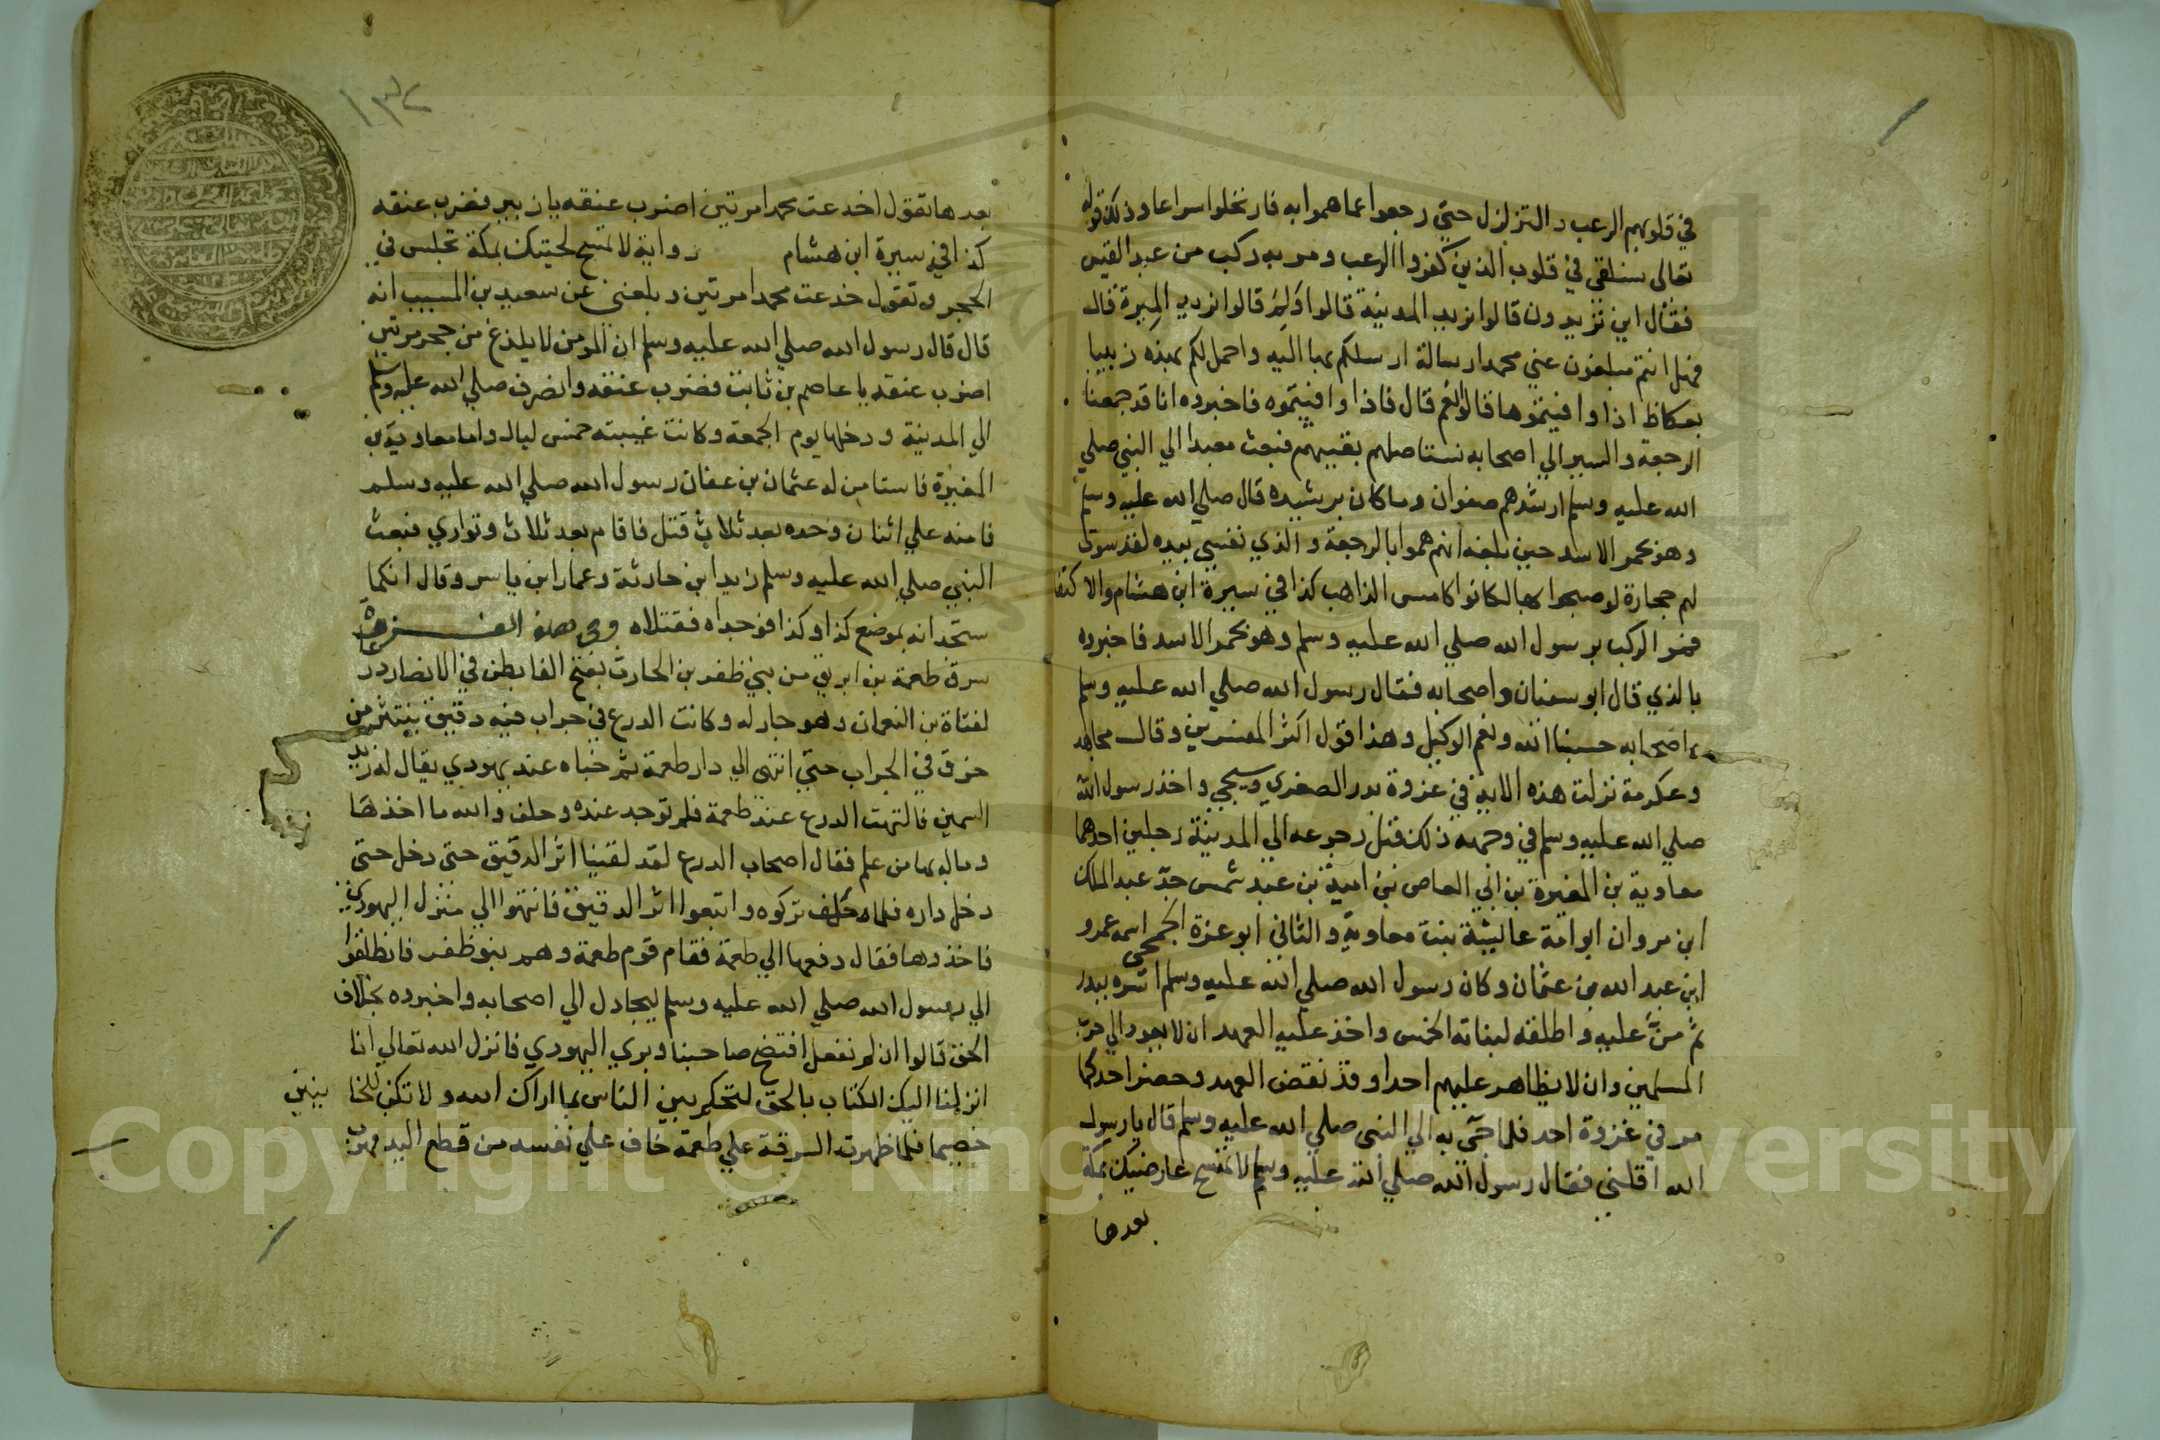 في قلوبهم الرعب والتزلزل حتى رجعوا عما هموا به فارتحلوا سراعا وذلك قوله
تعالى سنلقي في قلوب الذين كفروا الرعب ومر به ركب من عبد القيس
فقال اين تريدون قالوا نريد المدينة قالوا ولم قالوا نريد الميرة قال
فهل انتم مبلغون عني محمدا رسالة ارسلكم بها اليه واحمل لكم بهذه زبيبا
بعكاظ اذا وافيتموها قالوا نعم قال فاذا وافيتموه فاخبروه انا قد جمعنا
الرجعة والسير الي اصحابه نستاصلهم بقيتهم فبعث معبدا الي النبي صلي
الله عليه وسلم ارشدهم صفوان وما كان برشيده قال صلي الله عليه وسلم
وهو بحمر الاسد حين بلغه انهم هموا بالرجعة والذي نفسي بيده لقد سومت
لهم حجارة لو صبحوا بها لكانوا كامس الذاهب كذا في سيرة ابن هشام والاكتفا
فمر الركب برسول الله صلي الله عليه وسلم وهو بحمر الاسد فاخبروه
بالذي قال ابو سفيان واصحابه فقال رسول الله صلي الله عليه وسلم
واصحابه حسبنا الله ونعم الوكيل وهذا قول اكثر المفسرين وقال مجاهد
وعكرمة نزلت هذه الاية في غزوة بدر الصغري وسيجي واخذ رسول الله
صلي الله عليه وسلم في وجهه ذلك قبل رجوعه الي المدينة رجلين احدهما
معاوية بن المغيرة بن ابي العاص بن امية بن عبد شمس جد عبد الملك
ابن مروان ابو امه عايشة بنت معاوية والثاني ابو عزة الجمحي اسمه عمرو
ابن عبد الله بن عثمان وكان رسول الله صلي الله عليه وسلم اسره ببدر
ثم من عليه واطلقه لبناته الخمس واخذ عليه العهد ان لا يعود الي حرب
المسلمين وان لا يظاهر عليهم احدا وقد نقض العهد وحضر احد كما
مر في غزوة احد فلما جئ به الي النبي صلي الله عليه وسلم قال يا رسول
الله اقلني فقال رسول الله صلي الله عليه وسلم لا تمسح عارضيك بمكة
بعدها
١٣٢
بعدها تقول اخدعت محمدا مرتين اضرب عنقه يا زبير فضرب عنقه
كذا في سيرة ابن هشام رواية لا تمسح لحيتك بمكة تجلس في
الحجر وتقول خدعت محمدا مرتين وبلغني عن سعيد بن المسيب انه
قال قال رسول الله صلي الله عليه وسلم ان المومن لا يلدغ من جحر مرتين
اضرب عنقه يا عاصم بن ثابت فضرب عنقه وانصرف صلي الله عليه وسلم
الي المدينة ودخلها يوم الجمعة وكانت غيبته خمس ليال واما معاوية بن
المغيرة فاستامن له عثمان بن عفان رسول الله صلي الله عليه وسلم
فامنه علي انه ان وجده بعد ثلاث قتل فاقام بعد ثلاث وتواري فبعث
النبي صلي الله عليه وسلم زيد ابن حارثة وعمار ابن ياسر وقال انكما
ستجدانه بموضع كذا وكذا فوجداه فقتلاه وفي هذه السنة
سرق طعمة بن ابريق من بني ظفر بن الحارث بفتح الفا بطن في الانصار درع
لقتادة بن النعمان وهو جار له وكانت الدرع في جراب فيه دقيق ينتثر من
خرق في الجراب حتي انتهي الي دار طعمة ثم خباه عند يهودي يقال له زيد
السمين فالتمست الدرع عند طعمة فلم توجد عنده وحلف والله ما اخذها
وماله بها من علم فقال اصحاب الدرع لقد لقينا اثر الدقيق حتى دخل حتى
دخل داره فلما حلف تركوه واتبعوا اثر الدقيق فانتهوا الي منزل اليهودي
فاخذوها فقال دفعها الي طعمة فقام قوم طعمة وهم بنو ظفر فانطلقوا
الي رسول الله صلي الله عليه وسلم ليجادل الي اصحابه واخبروه بخلاف
الحق قالوا ان لم تفعل افتضح صاحبنا وبري اليهودي فانزل الله تعالي انا
انزلنا اليك الكتاب بالحق لتحكم بين الناس بما اراك الله ولا تكن للخاينين
خصيما فلما ظهرت السرقة علي طعمة خاف علي نفسه من قطع اليد فهرب
Copyright © King Saud University